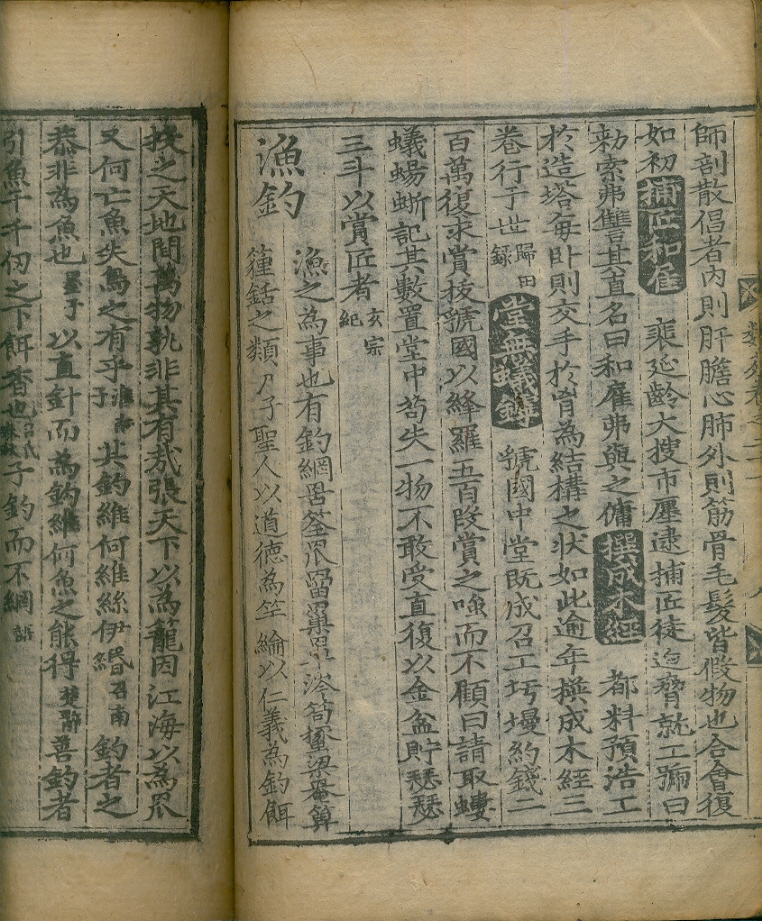 師剖散倡者內則肝膽心肺外則筋骨毛髮皆假物也合會復
如初 捕匠和雇 裴延齡大搜市廛逮捕匠徒迫脅就工號曰
勑索弗讐其直名曰和雇弗與之傭 撰成木經 都料預浩工
於造塔每卧則交手於胷為結構之狀如此逾年撰成木經三
卷行于世 歸田錄 堂無蟻 號國中堂既成召工圬墁約錢二
百萬復求賞㧞虢國以絳羅五百段賞之嗤而不顧曰請取螻
蟻蜴蜥記其數置堂中苟失一物不敢受直復以金盆貯瑟瑟
三斗以賞匠者 玄宗紀
漁釣
漁之為事也有釣網罟筌罘罶䍡罩涔筍梁罨箄
䈽銛之類乃子聖人以道德為竿綸以仁義為釣餌
投之天地間萬物孰非其有哉張天下以為籠因江海以為罘
又何亡魚失鳥之有乎 淮南子 其釣維何維絲伊緡 召南 釣者之
恭非為魚也 墨子 以直針而為釣維何魚之能得 楚辭 善釣者
引魚于千仞之下餌香也 子釣而不網 語